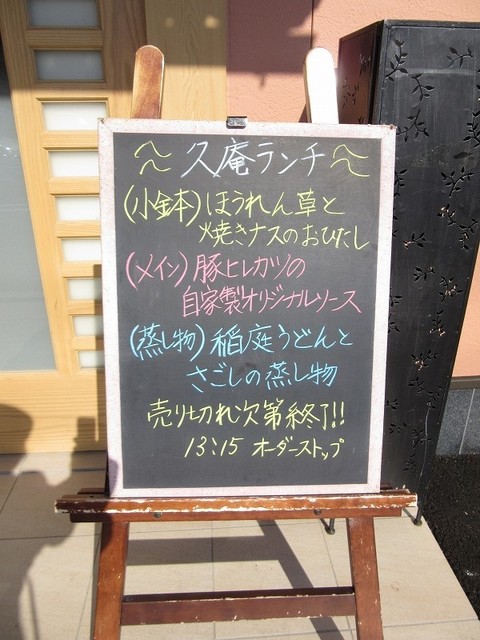 久庵ランチ
(小鉢)ほうれん草と
焼きナスのおひたし
(メイン)豚ヒレカツの
自家製オリジナルソース
(蒸し物)稲庭うどんと
さごしの蒸し物
売り切れ次第終了!!
13:15 オーダーストップ